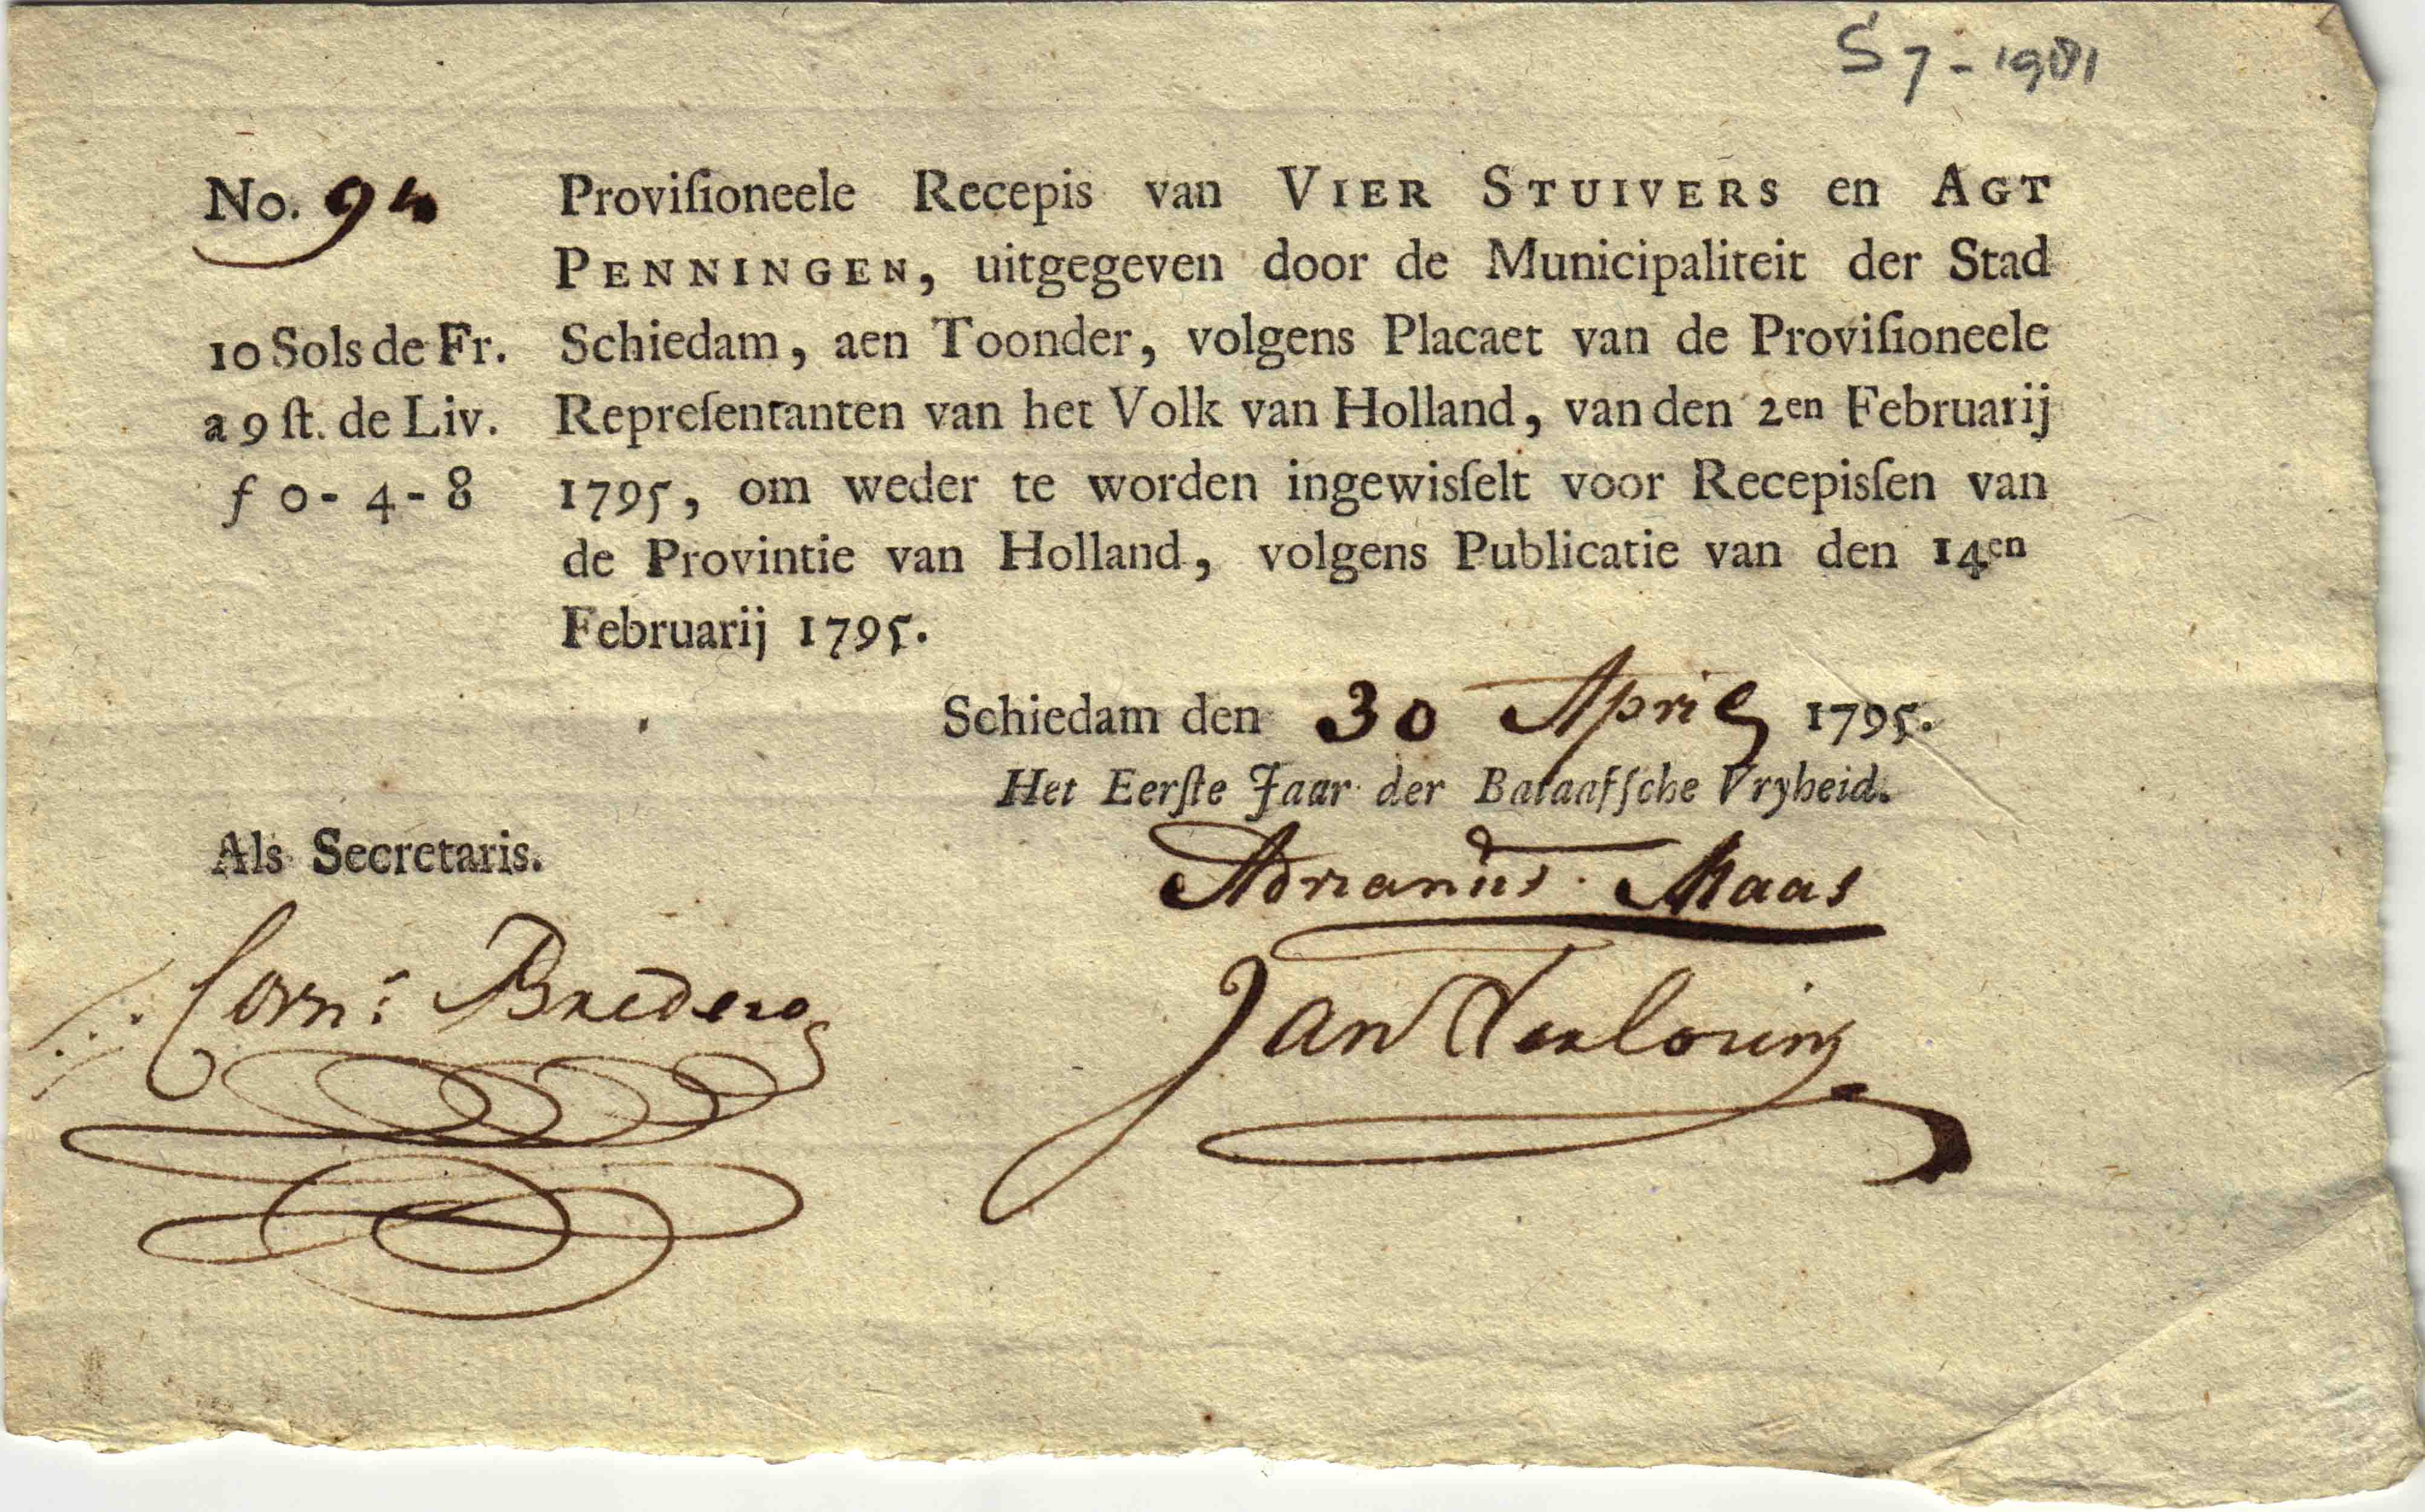 S 7 - 1981
No. 94
Proviſioneele Recepis van VIER STUIVERS en AGT
PENNINGEN, uitgegeven door de Municipaliteit der Stad
10 Sols de Fr.
Schiedam, aen Toonder, volgens Placaet van de Proviſioneele
a 9 ſt. de Liv.
Repreſentanten van het Volk van Holland, van den 2en Februarij
f 0 - 4 - 8
1795, om weder te worden ingewisſelt voor Recepisſen van
de Provintie van Holland, volgens Publicatie van den 14en
Februarij 1795.
Schiedam den 30 April 1795.
Het Eerſte Jaar der Bataafſche Vryheid.
Als Secretaris.
Adrianus Maas
Corn: Bredero
Jan